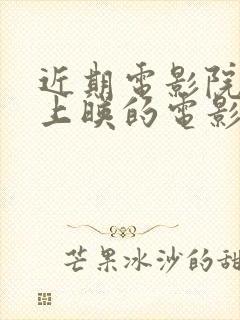 近期電影院
上映的電影
芒果冰沙的甜